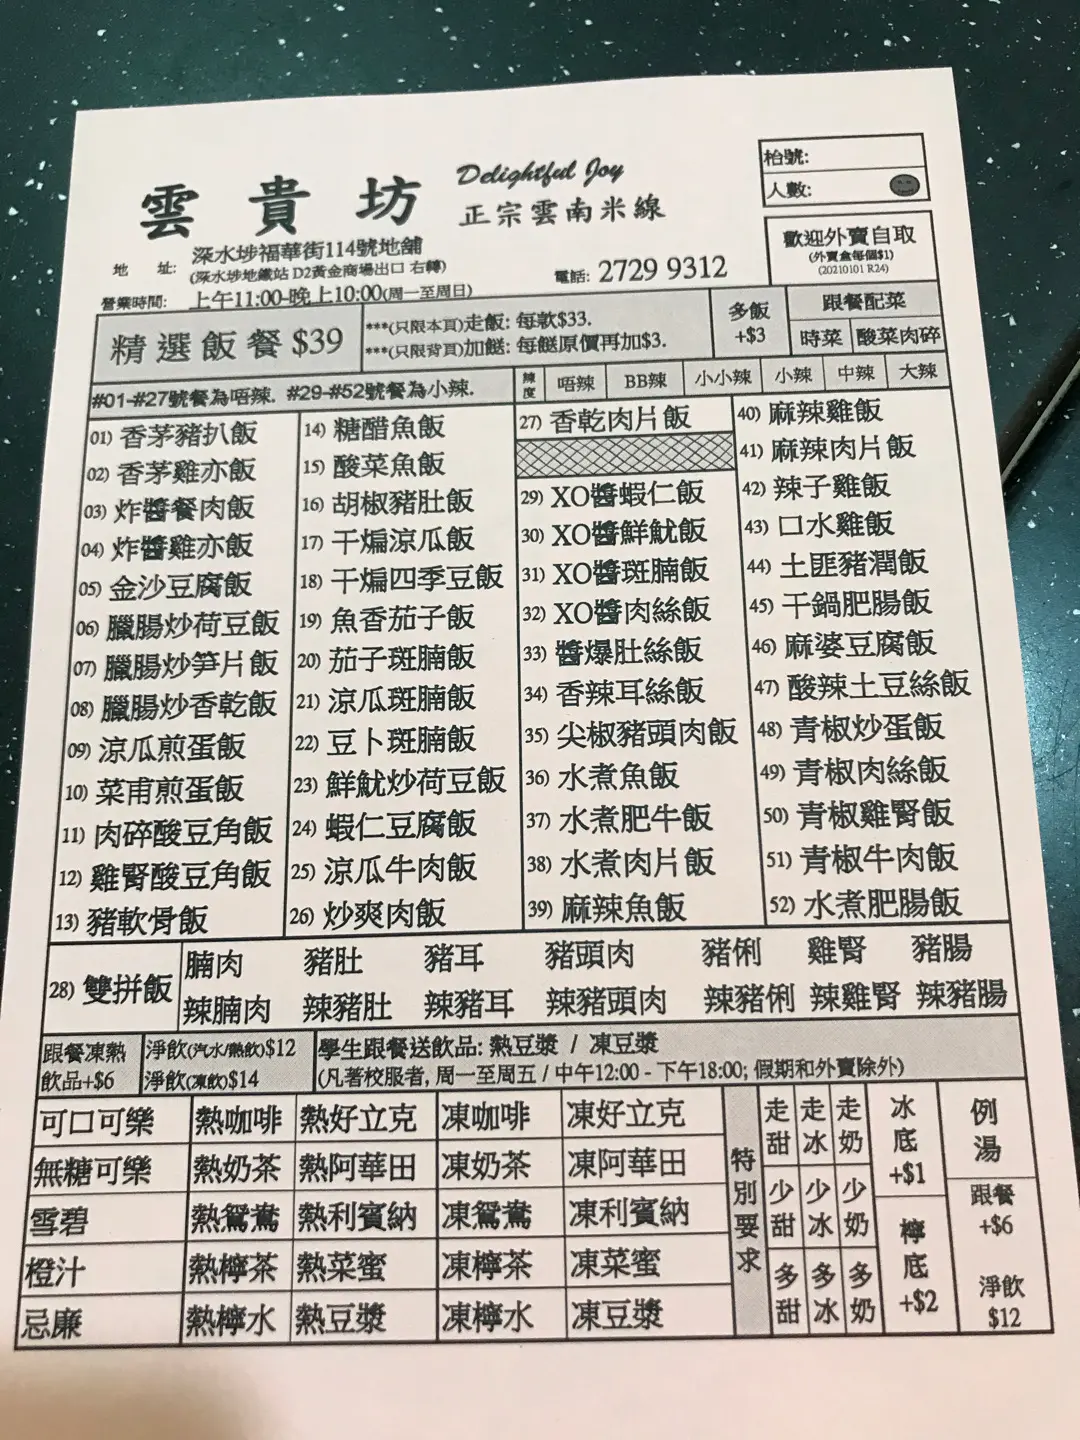 Delightful Joy
雲貴坊
正宗雲南米線
枱號:
人數:
歡迎外賣自取
(外賣盒每個$1)
(20210101 R24)
地 址: 深水埗福華街114號地舖
(深水埗地鐵站 D2黃金商場出口 右轉)
電話: 2729 9312
營業時間: 上午11:00-晚上10:00(周一至周日)
精選飯餐 $39
***(只限本頁)走飯: 每款$33.
***(只限背頁)加餸: 每餸原價再加$3.
多飯
+$3
跟餐配菜
時菜 酸菜肉碎
#01-#27號餐為唔辣. #29-#52號餐為小辣.
辣度 唔辣 BB辣 小小辣 小辣 中辣 大辣
01) 香茅豬扒飯
02) 香茅雞亦飯
03) 炸醬餐肉飯
04) 炸醬雞亦飯
05) 金沙豆腐飯
06) 臘腸炒荷豆飯
07) 臘腸炒笋片飯
08) 臘腸炒香乾飯
09) 涼瓜煎蛋飯
10) 菜甫煎蛋飯
11) 肉碎酸豆角飯
12) 雞腎酸豆角飯
13) 豬軟骨飯
14) 糖醋魚飯
15) 酸菜魚飯
16) 胡椒豬肚飯
17) 干煸涼瓜飯
18) 干煸四季豆飯
19) 魚香茄子飯
20) 茄子斑腩飯
21) 涼瓜斑腩飯
22) 豆卜斑腩飯
23) 鮮魷炒荷豆飯
24) 蝦仁豆腐飯
25) 涼瓜牛肉飯
26) 炒爽肉飯
27) 香乾肉片飯
29) XO醬蝦仁飯
30) XO醬鮮魷飯
31) XO醬斑腩飯
32) XO醬肉絲飯
33) 醬爆肚絲飯
34) 香辣耳絲飯
35) 尖椒豬頭肉飯
36) 水煮魚飯
37) 水煮肥牛飯
38) 水煮肉片飯
39) 麻辣魚飯
40) 麻辣雞飯
41) 麻辣肉片飯
42) 辣子雞飯
43) 口水雞飯
44) 土匪豬潤飯
45) 干鍋肥腸飯
46) 麻婆豆腐飯
47) 酸辣土豆絲飯
48) 青椒炒蛋飯
49) 青椒肉絲飯
50) 青椒雞腎飯
51) 青椒牛肉飯
52) 水煮肥腸飯
28) 雙拼飯
腩肉 豬肚 豬耳 豬頭肉 豬俐 雞腎 豬腸
辣腩肉 辣豬肚 辣豬耳 辣豬頭肉 辣豬俐 辣雞腎 辣豬腸
跟餐凍熱
飲品+$6
淨飲(汽水/熱飲)$12
淨飲(凍飲)$14
學生跟餐送飲品: 熱豆漿 / 凍豆漿
(凡著校服者, 周一至周五 / 中午12:00 - 下午18:00; 假期和外賣除外)
可口可樂 熱咖啡 熱好立克 凍咖啡 凍好立克
無糖可樂 熱奶茶 熱阿華田 凍奶茶 凍阿華田
雪碧 熱鴛鴦 熱利賓納 凍鴛鴦 凍利賓納
橙汁 熱檸茶 熱菜蜜 凍檸茶 凍菜蜜
忌廉 熱檸水 熱豆漿 凍檸水 凍豆漿
特別要求
走甜 走冰 走奶
少甜 少冰 少奶
多甜 多冰 多奶
冰底
+$1
檸底
+$2
例湯
跟餐
+$6
淨飲
$12